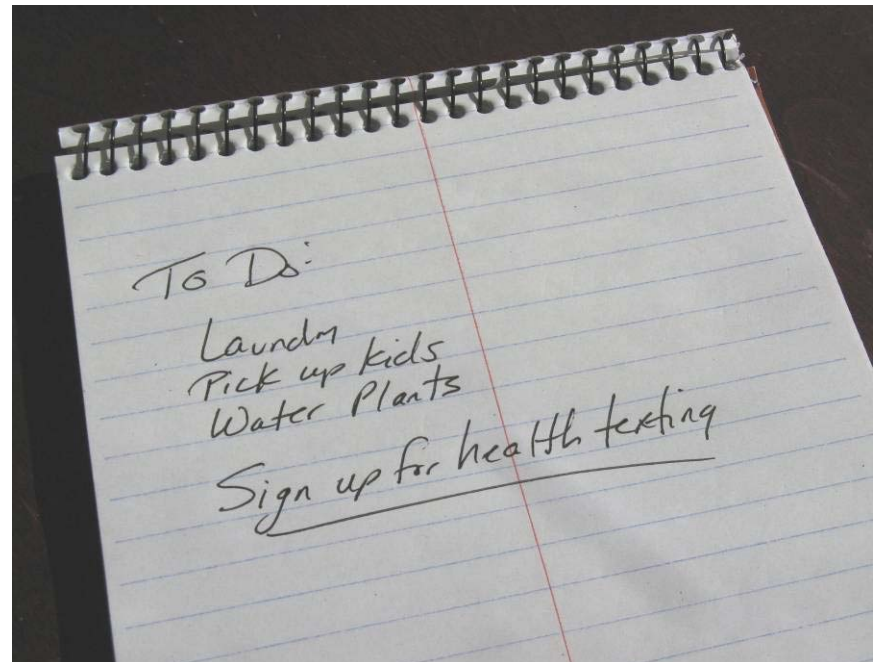 To Do:
Laundry
Pick up kids
Water Plants
Sign up for health texting